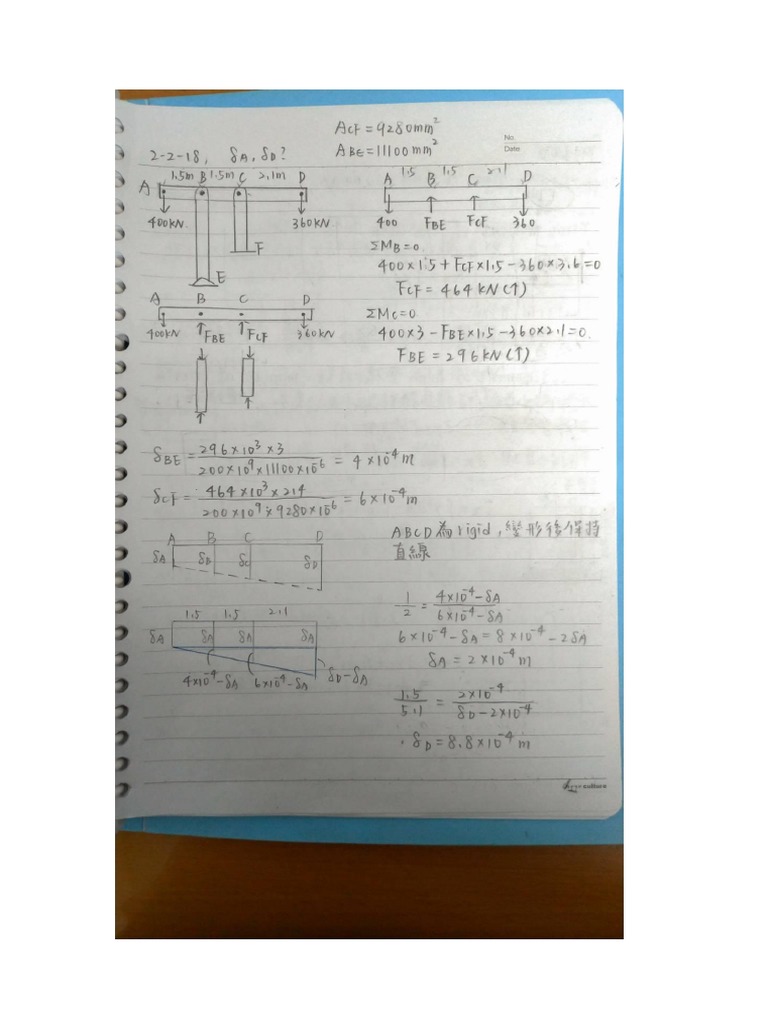 A_CF = 9280mm²
No.
Date
2-2-18, δA, δD? A_BE = 11100 mm²
1.5m 1.5m 2.1m
A B C D
400KN 360KN
F
E
1.5 1.5 2.1
A B C D
400 F_BE F_CF 360
ΣM_B=0
400×1.5+F_CF×1.5-360×3.6=0
F_CF = 464 KN(↑)
A B C D
400KN ↑F_BE ↑F_CF 360KN
ΣM_C=0
400×3-F_BE×1.5-360×2.1=0
F_BE = 296KN(↑)
δ_BE = 296×10³×3 / 200×10⁹×11100×10⁻⁶ = 4×10⁻⁴m
δ_CF = 464×10³×2.4 / 200×10⁹×9280×10⁻⁶ = 6×10⁻⁴m
A B C D
δA δB δC δD
ABCD為rigid, 變形後保持
直線
1.5 1.5 2.1
δA δA δA δA
4×10⁻⁴-δA 6×10⁻⁴-δA δD-δA
1/2 = 4×10⁻⁴-δA / 6×10⁻⁴-δA
6×10⁻⁴-δA = 8×10⁻⁴-2δA
δA = 2×10⁻⁴m
1.5/5.1 = 2×10⁻⁴ / δD-2×10⁻⁴
δD = 8.8×10⁻⁴m
culture